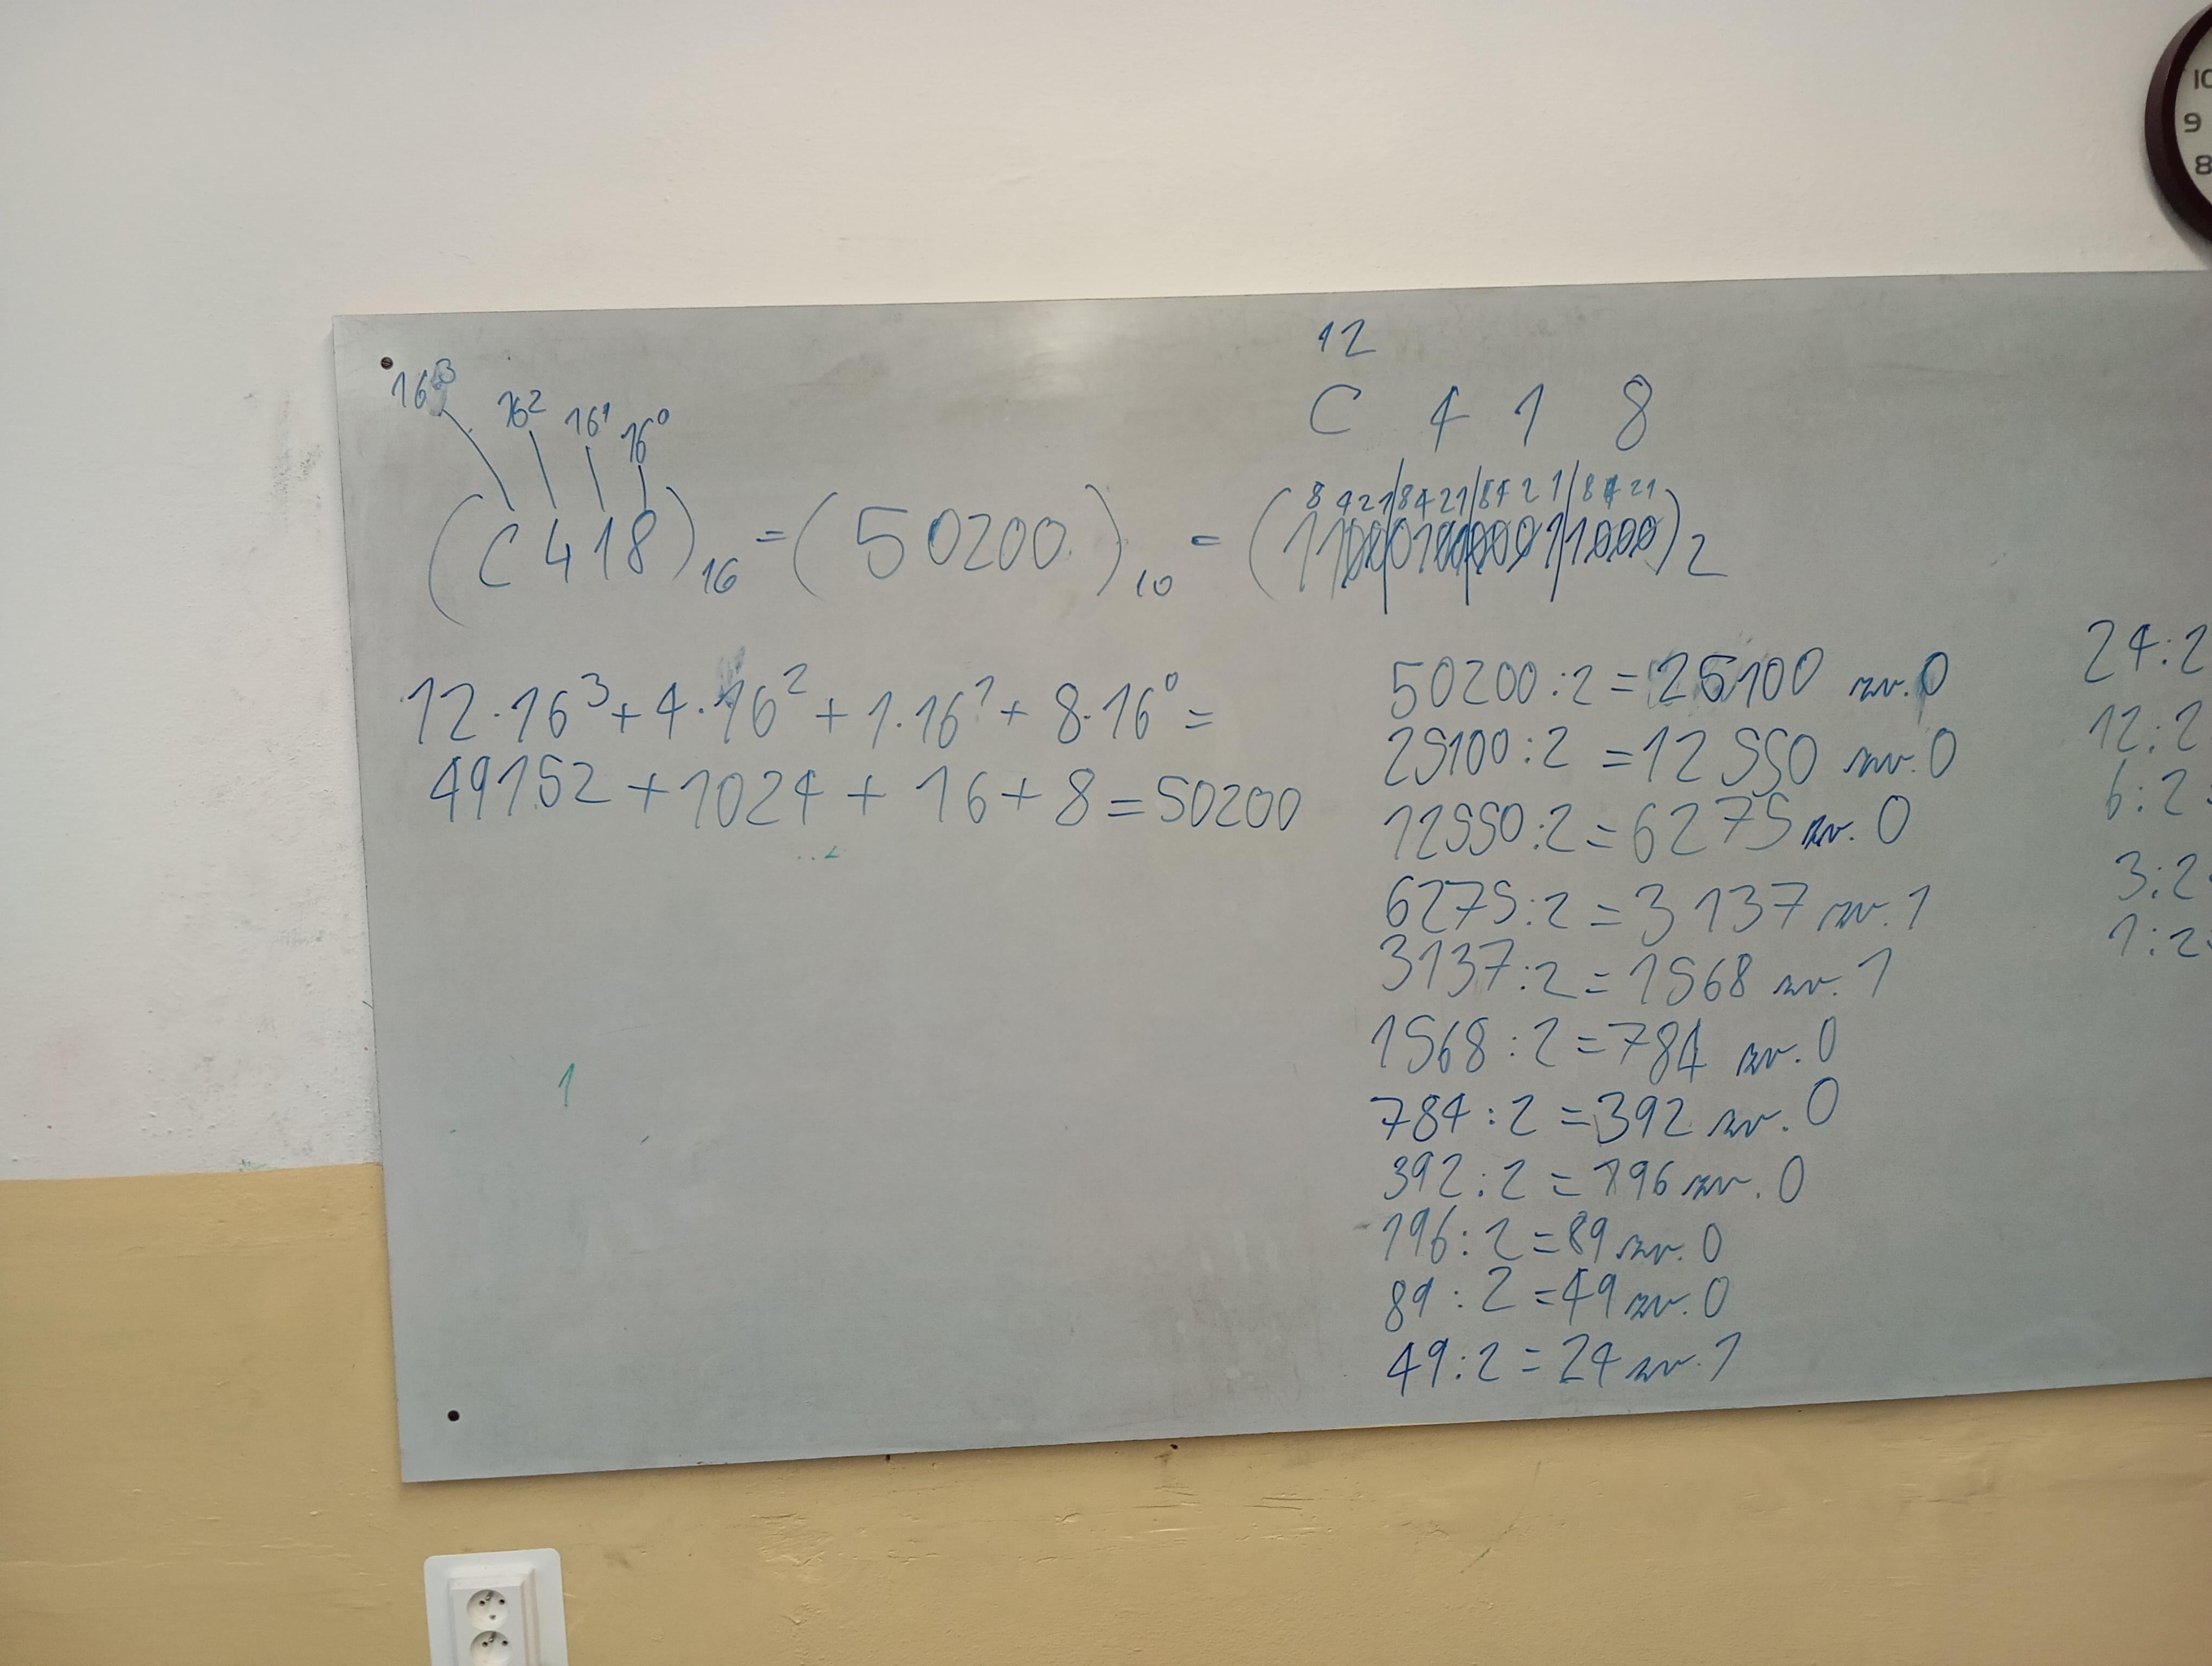 12
16³ 16² 16¹ 16⁰
C 4 1 8
8 4 2 1 | 8 4 2 1 | 8 4 2 1 | 8 4 2 1
(C418)₁₆ = (50200)₁₀ = (1100|0100|0001|1000)₂
12·16³ + 4·16² + 1·16¹ + 8·16⁰ =
49152 + 1024 + 16 + 8 = 50200
50200 : 2 = 25100 zv. 0
25100 : 2 = 12550 zv. 0
12550 : 2 = 6275 zv. 0
6275 : 2 = 3137 zv. 1
3137 : 2 = 1568 zv. 1
1568 : 2 = 784 zv. 0
784 : 2 = 392 zv. 0
392 : 2 = 196 zv. 0
196 : 2 = 89 zv. 0
89 : 2 = 49 zv. 0
49 : 2 = 24 zv. 1
24 : 2
12 : 2
6 : 2 =
3 : 2
1 : 2 =
1
10
9
8